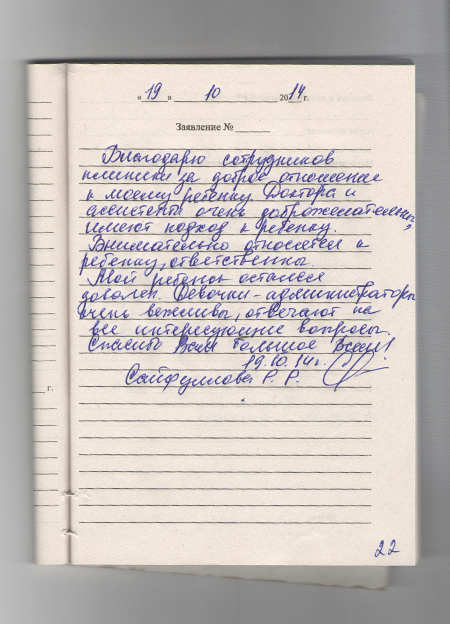 « 19 » 10 2014 г.
Заявление №
Благодарю сотрудников
клиники за доброе отношение
к моему ребенку. Доктора и
ассистенты очень доброжелательны,
имеют подход к ребенку.
Внимательно относятся к
ребенку, ответственны.
Мой ребенок остался
доволен. Девочки-администраторы
очень вежливы, отвечают на
все интересующие вопросы.
Спасибо Вам большое Всем!
19.10.14г.
Сайфуллова Р. Р.
г.
22